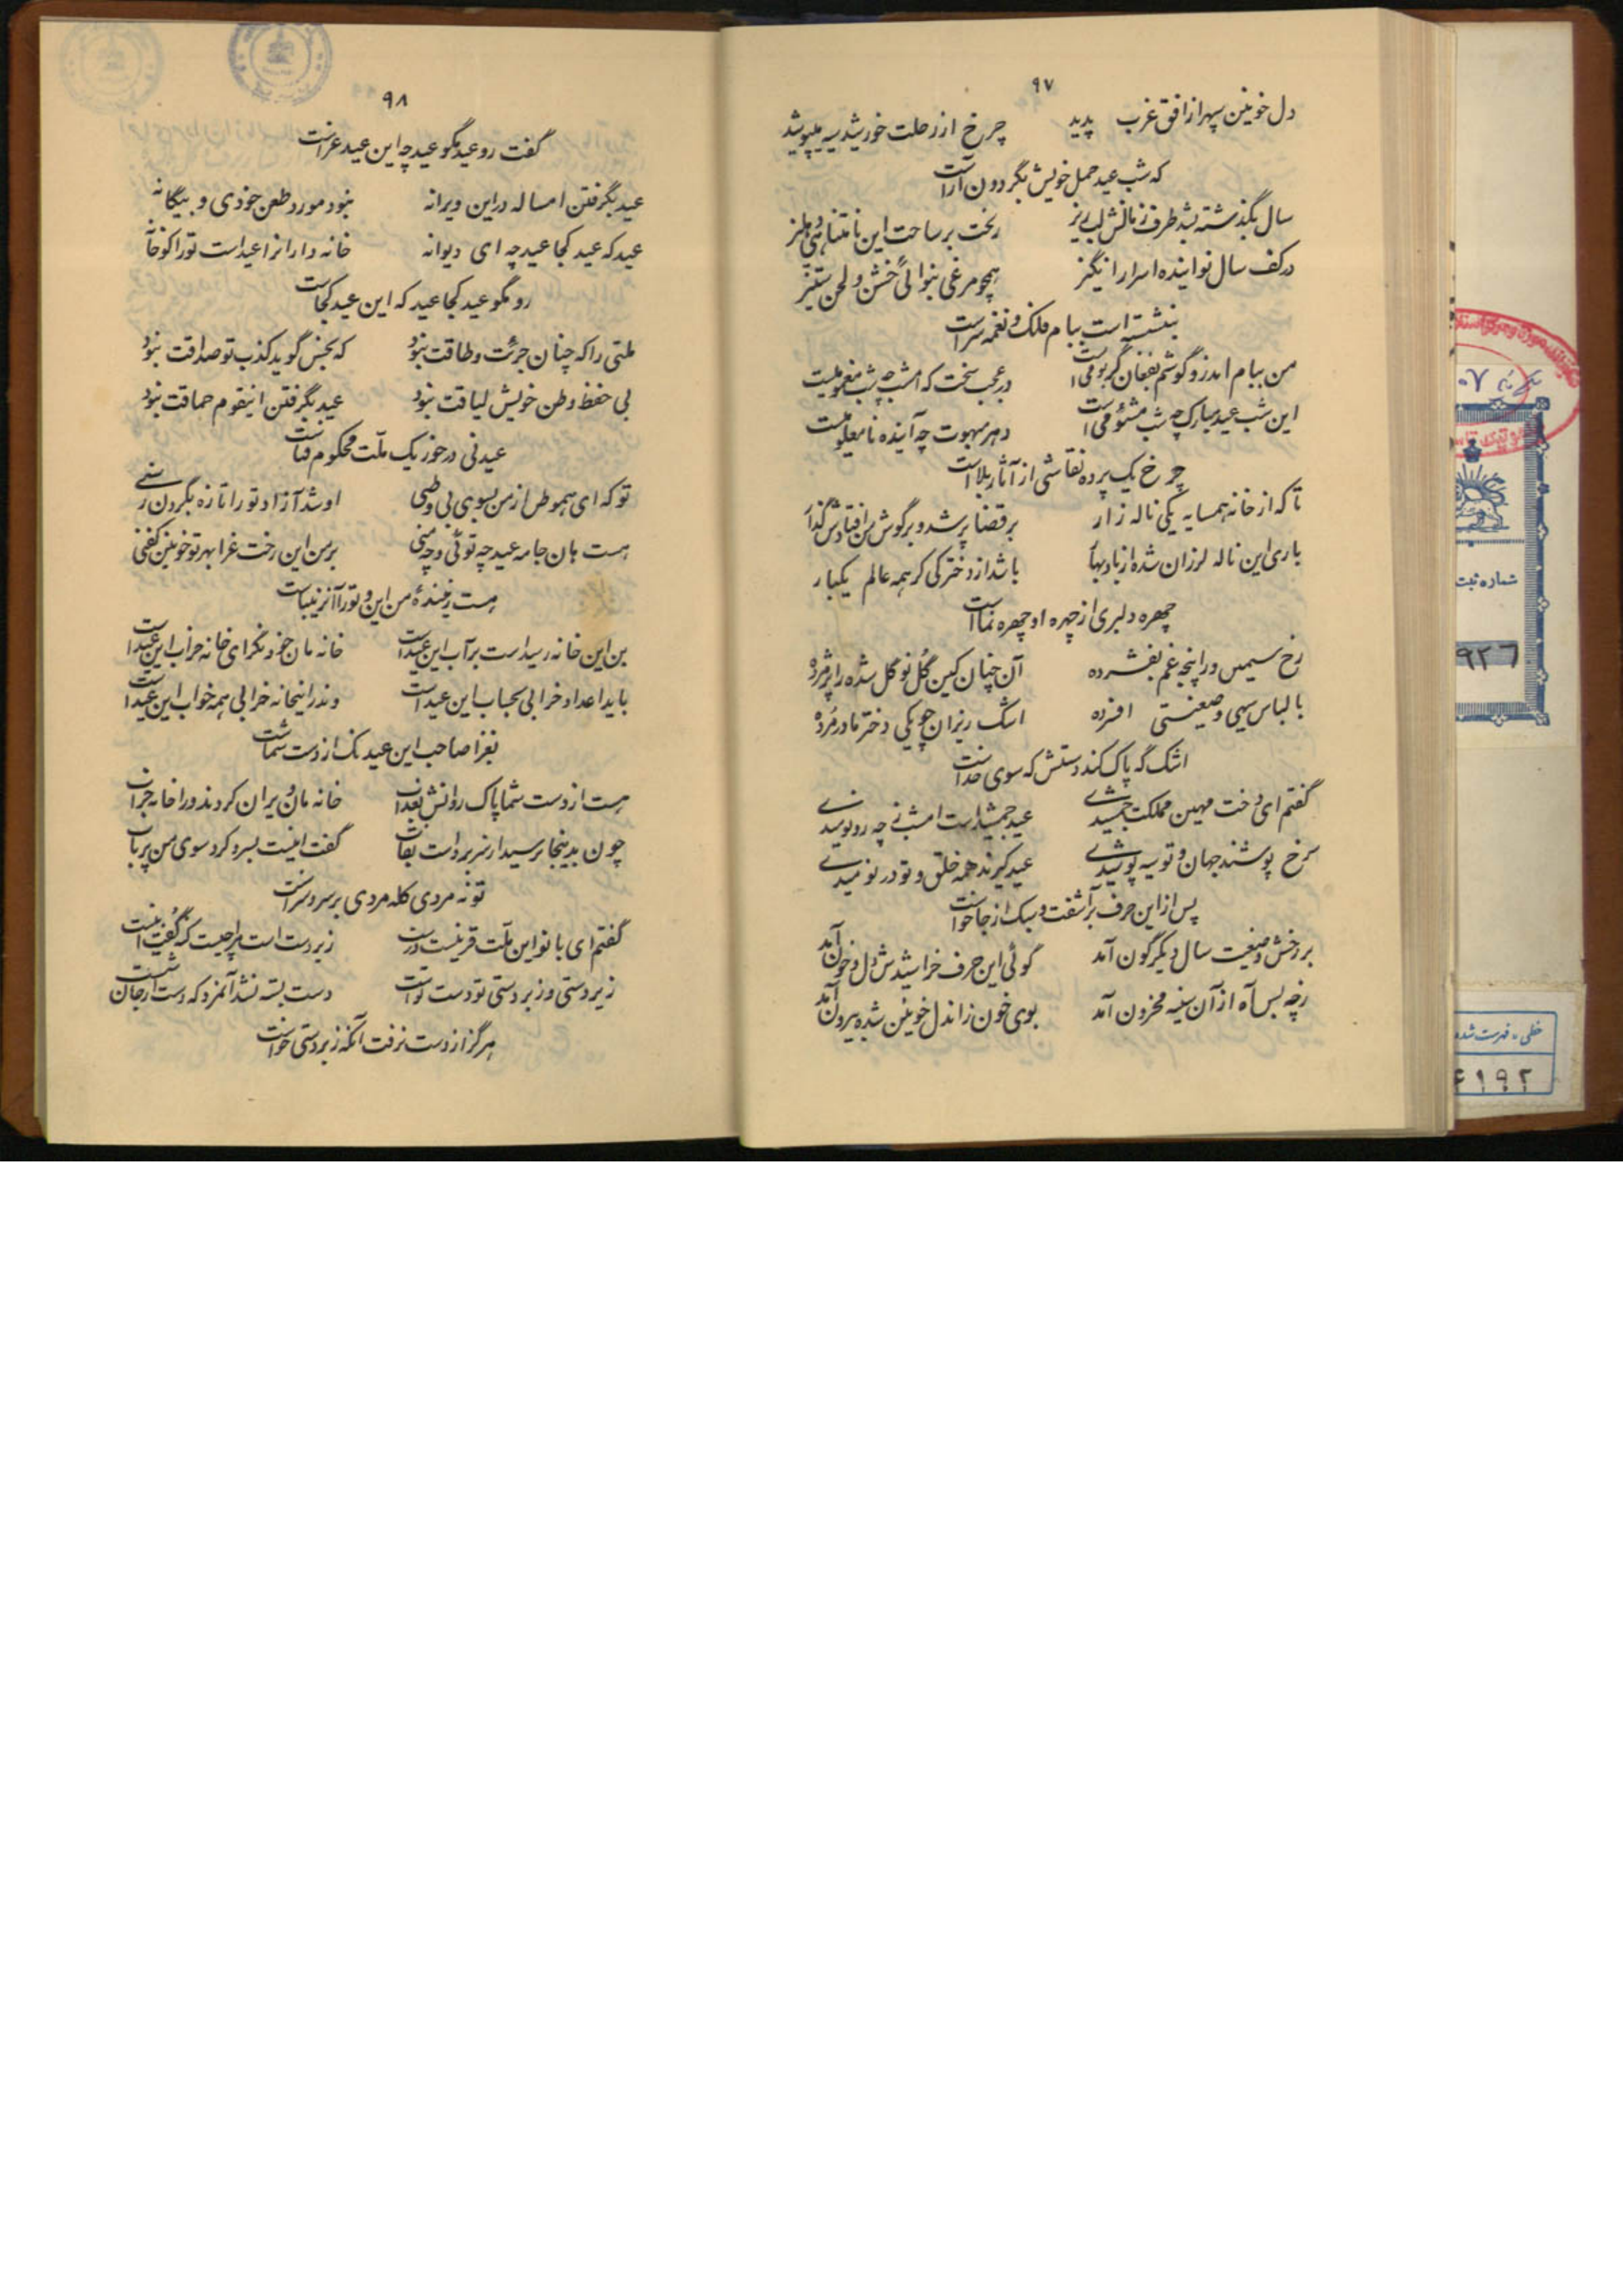 ۹۷
دل خونین سپهر از افق غرب پدید چرخ از رحلت خورشید سیه میپوشد
که شب عید حمل خویش بگردون آراست
سال بگذشته بشد ظرف زمانش لبریز ریخت بر ساحت این نامتناهی دهلیز
در کف سال نو اینده اسرار انگیز همچو مرغی بنوائی خشن و لحن ستیز
بنشسته است ببام فلک و نغمه سراست
من ببام اندر و گوشم بفغان گر بومی است در عجب سخت که امشب چه شب مغمومیست
این شب عید مبارک چه شب مشئومی است دهر مبهوت چه آینده نامعلومیست
چرخ یک پرده نقاشی از آثار بلا است
تا که از خانه همسایه یکی ناله زار بر قضا پر شد و بر گوش من افتادش گذار
باری این ناله لرزان شده از باد بهار باشد از دخترکی کز همه عالم یکبار
چهره دلبری از چهره او چهره نما است
رخ سیمین ورا پنجه غم بفشرده آن چنان کین گل نو گل شده را پژمرده
با لباس سیهی وضعیتی افسرده اشک ریزان چو یکی دختر مادر مرده
اشک گه پاک کند دستش که سوی خداست
گفتم ای دخت مهین مملکت جمشیدی عید جمشید است امشب ز چه رو نومیدی
سرخ پوشند جهان و تو سیه پوشیدی عید گیرند همه خلق و تو در نومیدی
پس از این حرف برآشفت و سبک از جا خواست
بر رخش وضعیت سال دیگرگون آمد گوئی این حرف خراشیدش دل و خون آمد
زچه بس آه از آن سینه محزون آمد بوی خون زاندل خونین شده بیرون آمد
۹۸
گفت رو عید مگو عید چه این عید عزاست
عید بگرفتن امساله در این ویرانه نبود مورد طعن خودی و بیگانه
عید که عید کجا عید چه ای دیوانه خانه داران را عید است تو را کو خانه
رو مگو عید کجا عید که این عید کجاست
ملتی را که چنان جرئت و طاقت نبود که بخس گوید کذب تو صداقت نبود
بی حفظ وطن خویش لیاقت نبود عید بگرفتن اینقوم حماقت نبود
عید نی در خور یک ملت محکوم فناست
تو که ای هموطن از من بسوی بی وطنی او شد آزاد تو را تازه بگردن رسنی
هست هان جامه عید چه توئی و چه منی بر من این رخت عزا بهر تو خونین کفنی
هست زیبنده من این و تو را آن زیباست
بن این خانه رسیداست بر آب این عید است خانه مان خود نگر ای خانه خراب این عید است
باید اعداد خرابی بحساب این عید است وندر اینخانه خرابی همه خواب این عید است
بعزا صاحب این عید نک از دست شماست
هست از دست شما پاک روانش بعذاب خانه مان ویران کردند ورا خانه خراب
چون بدینجا برسید از سر برداشت نقاب گفت اینست بسر و کرد سوی من پرتاب
تو نه مردی کله مردی بر سر و سراست
گفتم ای بانو این ملت قرنیست درست زبردست است مرا چیست که گفت اینست
زیردستی و زبردستی تو دست تواست دست بسته نشد آنمرد که دست از جان شست
هرگز از دست نرفت آنکه زبردستی خواست
شماره ثبت
۹۲۶
خطی - فهرست شده
۶۱۹۲